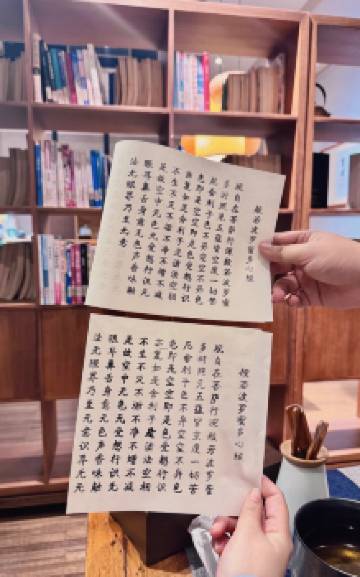 般若波罗蜜多心经
观自在菩萨行深般若波罗蜜
多时照见五蕴皆空度一切苦
厄舍利子色不异空空不异色
色即是空空即是色受想行识
亦复如是舍利子是诸法空相
不生不灭不垢不净不增不减
是故空中无色无受想行识无
眼耳鼻舌身意无色声香味触
法无眼界乃至无意
般若波罗蜜多心经
观自在菩萨行深般若波罗蜜
多时照见五蕴皆空度一切苦
厄舍利子色不异空空不异色
色即是空空即是色受想行识
亦复如是舍利子是诸法空相
不生不灭不垢不净不增不减
是故空中无色无受想行识无
眼耳鼻舌身意无色声香味触
法无眼界乃至无意识界无无